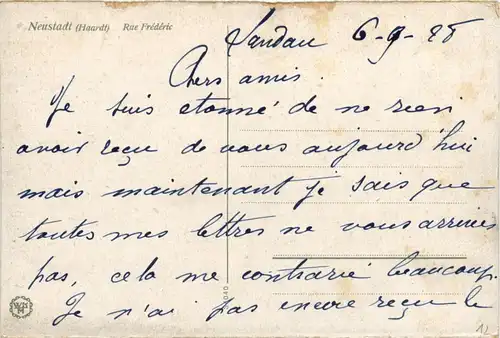 Neustadt (Haardt) Rue Frédéric
Landau 6-9-28
Chers amis.
Je suis etonné de ne rien
avoir reçu de vous aujourd'hui
mais maintenant je sais que
toutes mes lettres ne vous arrivées
pas, cela me contrarié beaucoup.
Je n'ai pas encore reçu le